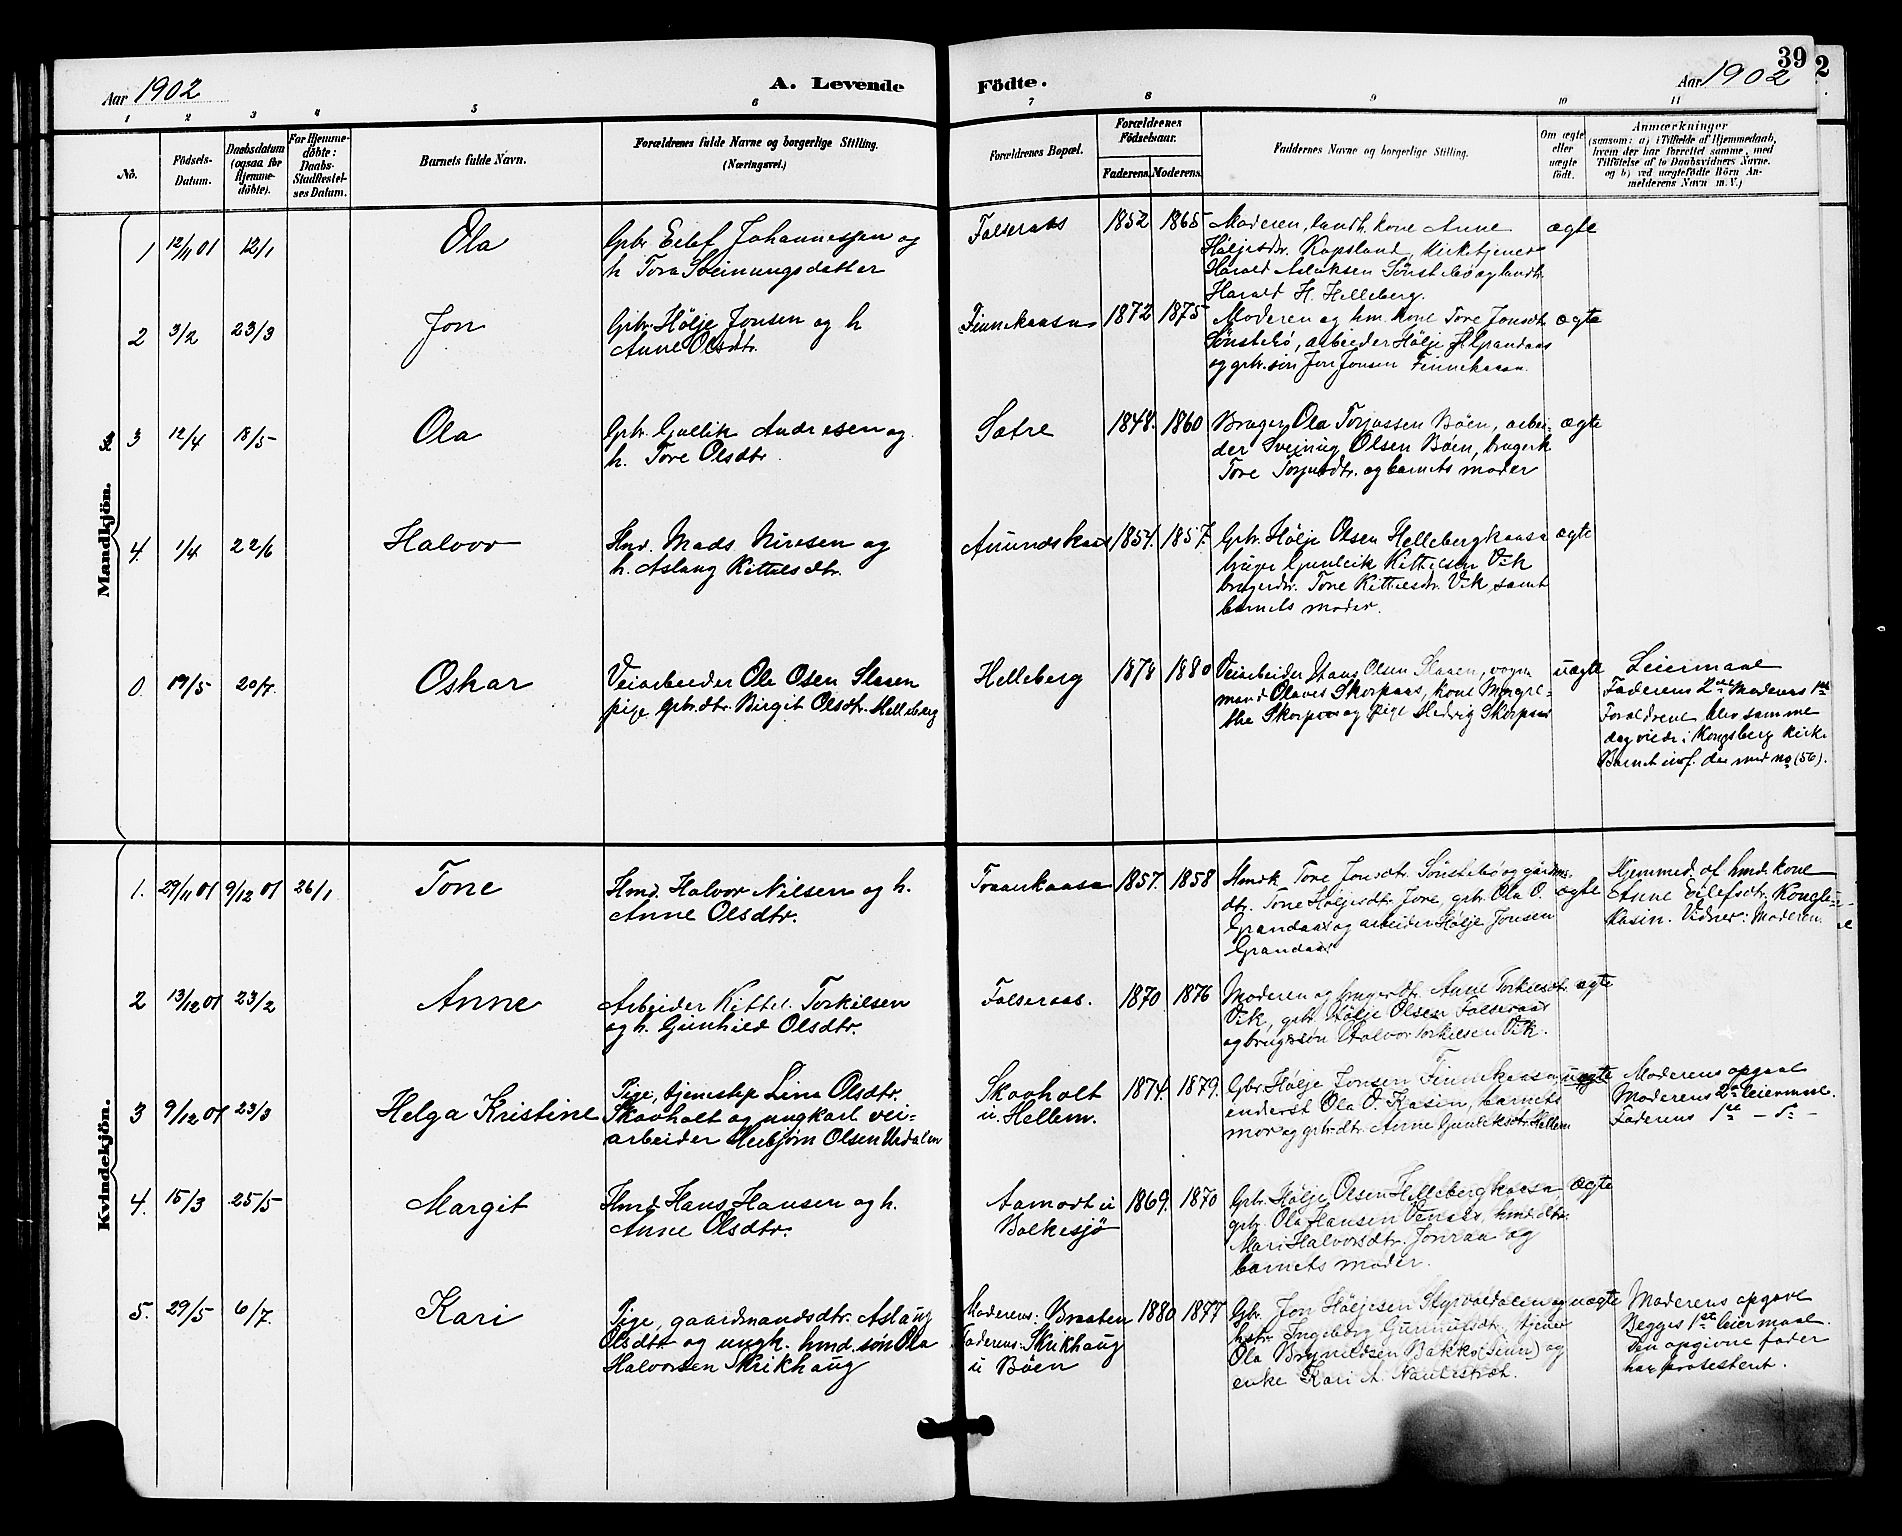 39
2
Aar 1902
A. Levende
Födte.
Aar 1902
1 2 3 4 5 6 7 8 9 10 11
No.
Födsels-Datum.
Daabsdatum (ogsaa for Hjemme-döbte).
For Hjemme-döbte: Daabs-Stadfæstel-ses Datum.
Barnets fulde Navn.
Forældrenes fulde Navne og borgerlige Stilling.
(Næringsvei.)
Forældrenes Bopæl.
Forældrenes Födselsaar.
Faderens. Moderens.
Faddernes Navne og borgerlige Stilling.
Om ægte eller uægte födt.
Anmærkninger
(saasom: a) i Tilfælde af Hjemmedaab,
hvem der har forrettet samme, med
Tilföielse af to Daabsvidners Navne.
og b) ved uægtefödte Börn An-
melderens Navn m. V.)
Mandkjön.
1 12/11 01 12/1 Ola
Gbr. Eilef Johannessen og
h Tora Sveinungsdatter
Falseraas 1852 1865
Moderen, landh. kone Anne
Høljesdr. Kopsland, kirketjener
Harald Aslaksen Sønstebø og landh.
Harald H. Helleberg.
ægte
2 3/2 23/3 Jon
Gbr. Hølje Jonsen og h
Anne Olsdtr.
Finnekaasa 1872 1875
Moderen og hm. kone Tore Jonsdtr.
Sønstebø, arbeider Hølje Grandaas
og gbr. søn Jon Jonsen Finnekaasa.
ægte
3 12/4 18/5 Ola
Gbr. Gullik Andresen og
h. Tore Olsdtr.
Satre 1848. 1860
Bruger Ola Torjussen Bøen, arbei-
der Sveinug Olsen Bøen, brugerk
Tore Torjusdtr. og barnets moder
ægte
4. 1/4 22/6 Halvor
Hmd. Mads Nirisen og
h. Aslaug Kittilsdtr.
Amundskaas 1854. 1857.
Gbr. Hølje Olsen Hellebergkaasa
bruger Gunleik Kittilsen Vik
brugerdtr. Tone Kittilsdtr. Vik samt
barnets moder.
ægte
0. 19/5 20/7. Oskar
Veiarbeider Ole Olsen Slaaen
pige gbr.dtr. Birgit Olsdtr. Helleberg
Helleberg 1878 1880
Veiarbeider Hans Olsen Slaaen, vogn
mand Olaves Skorpaas, kone Mngre-
the Skorpaas og pige Hedvig Skorpaas
uægte
Leiermaal
Faderens 2det Moderens 1ste
Forældrene blev samme
dag viede i Kongsberg kirke
Barnet inf. der med no (56).
Kvindekjön.
1. 29/11 01 9/12 01 26/1 Tone
Hmd. Halvor Nilsen og h.
Anne Olsdtr.
Traankaasa 1857. 1858
Hmdk Tore Jonsdtr. Sønstebø og gårdm.
dtr. Tone Høljesdtr. Jore, gbr. Ola O.
Grandaas og arbeider Hølje Jonsen
Grandaas
ægte
Hjemmed. af hmd. kone
Anne Eilefsdtr. Kongle-
kasin. Vidner: Moderen
2 13/12 01 23/2 Anne
Arbeider Kittel Torkilsen
og h. Gunhild Olsdtr.
Falseraas. 1870 1876
Moderen og brugerdtr. Anne Torkilsdtr.
Vik, gbr. Hølje Olsen Falseraas
og brugersøn Halvor Torkilsen Vik.
ægte
3 9/12 01 23/3 Helga Kristine
Pige, tjenestep. Lina Olsdtr.
Skovholt og ungkarl vei-
arbeider Herbjørn Olsen Urdalen
Skovholt
u. Hellem. 1874. 1879.
Gbr. Hølje Jonsen Finnekaasa
enderst Ola O. Kasin, barnets
mor og gbr.dtr. Anne Gunleiksdtr. Hellem
uægte
Moderens opgave
Moderens 2det leiermaal.
Faderens 1ste
4. 15/3 25/5 Margit
Hmd. Hans Hansen og h.
Anne Olsdtr.
Aamodt u
Bolkesjø 1869. 1870
Gbr. Hølje Olsen Hellebergkaasa,
gbr. Ola Hansen Venaas, hmd.dtr.
Mari Halvorsdtr. Jonraa og
barnets moder.
ægte
5. 29/5 6/7. Kari
Pige, gaardmandsdtr. Aslaug
Olsdtr. og ungk. hmd. søn Ola
Halvorsen Skrikhaug
Moderens: Braaten
Faderens: Skrikhaug
u Bøen 1880 1877
Gbr. Jon Høljesen Styvoldalen og
hstr. Ingeborg Gunnulfsdtr., tjener
Ola Brynildsen Bakke og
enke Kari A. Naulestræt.
uægte
Moderens opgave
Begges 1ste leiermaal.
Den opgivne fader
har protesteret.